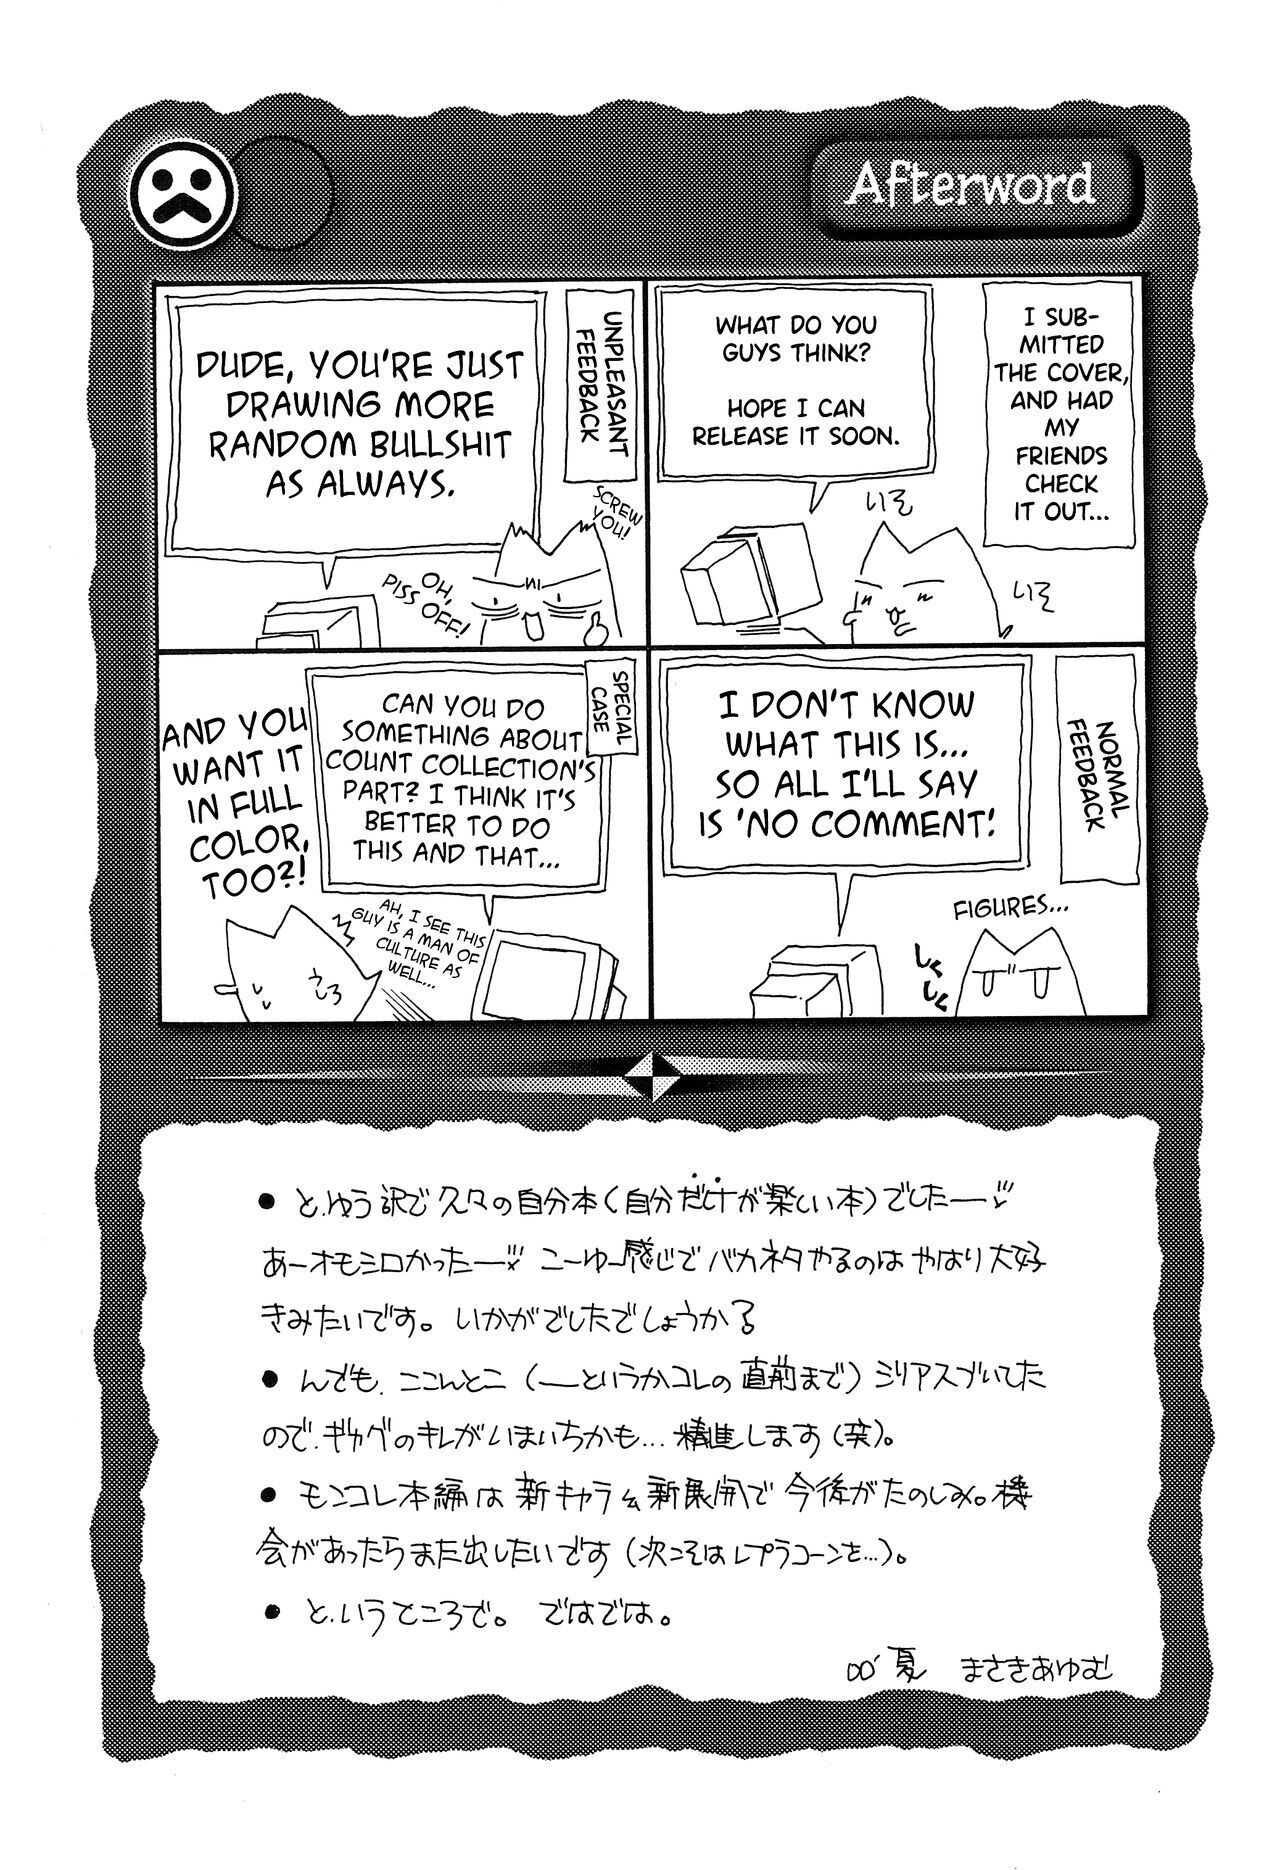 Afterword
I SUB-
MITTED
THE COVER,
AND HAD
MY
FRIENDS
CHECK
IT OUT...
WHAT DO YOU
GUYS THINK?
HOPE I CAN
RELEASE IT SOON.
UNPLEASANT
FEEDBACK
DUDE, YOU'RE JUST
DRAWING MORE
RANDOM BULLSHIT
AS ALWAYS.
SCREW
YOU!
OH,
PISS OFF!
NORMAL
FEEDBACK
I DON'T KNOW
WHAT THIS IS...
SO ALL I'LL SAY
IS 'NO COMMENT.'
FIGURES...
しく
しく
SPECIAL
CASE
CAN YOU DO
SOMETHING ABOUT
COUNT COLLECTION'S
PART? I THINK IT'S
BETTER TO DO
THIS AND THAT...
AND YOU
WANT IT
IN FULL
COLOR,
TOO?!
AH, I SEE THIS
GUY IS A MAN OF
CULTURE AS
WELL...
● と、ゆう訳で久々の自分本(自分だけが楽しい本)でしたー
あーオモシロかったー こーゆー感じでバカネタやるのはやはり大好
きみたいです。いかがでしたでしょうか?
● んでも、ここんとこ(ーというかコレの直前まで)シリアスづいてた
ので、ギャグのキレがいまいちかも…精進します(笑)。
● モンコレ本編は新キャラ&新展開で今後がたのしみ。機
会があったらまた出したいです(次こそはレプラコーンを…)。
● と、いうところで。ではでは。
00'夏 まさきあゆむ